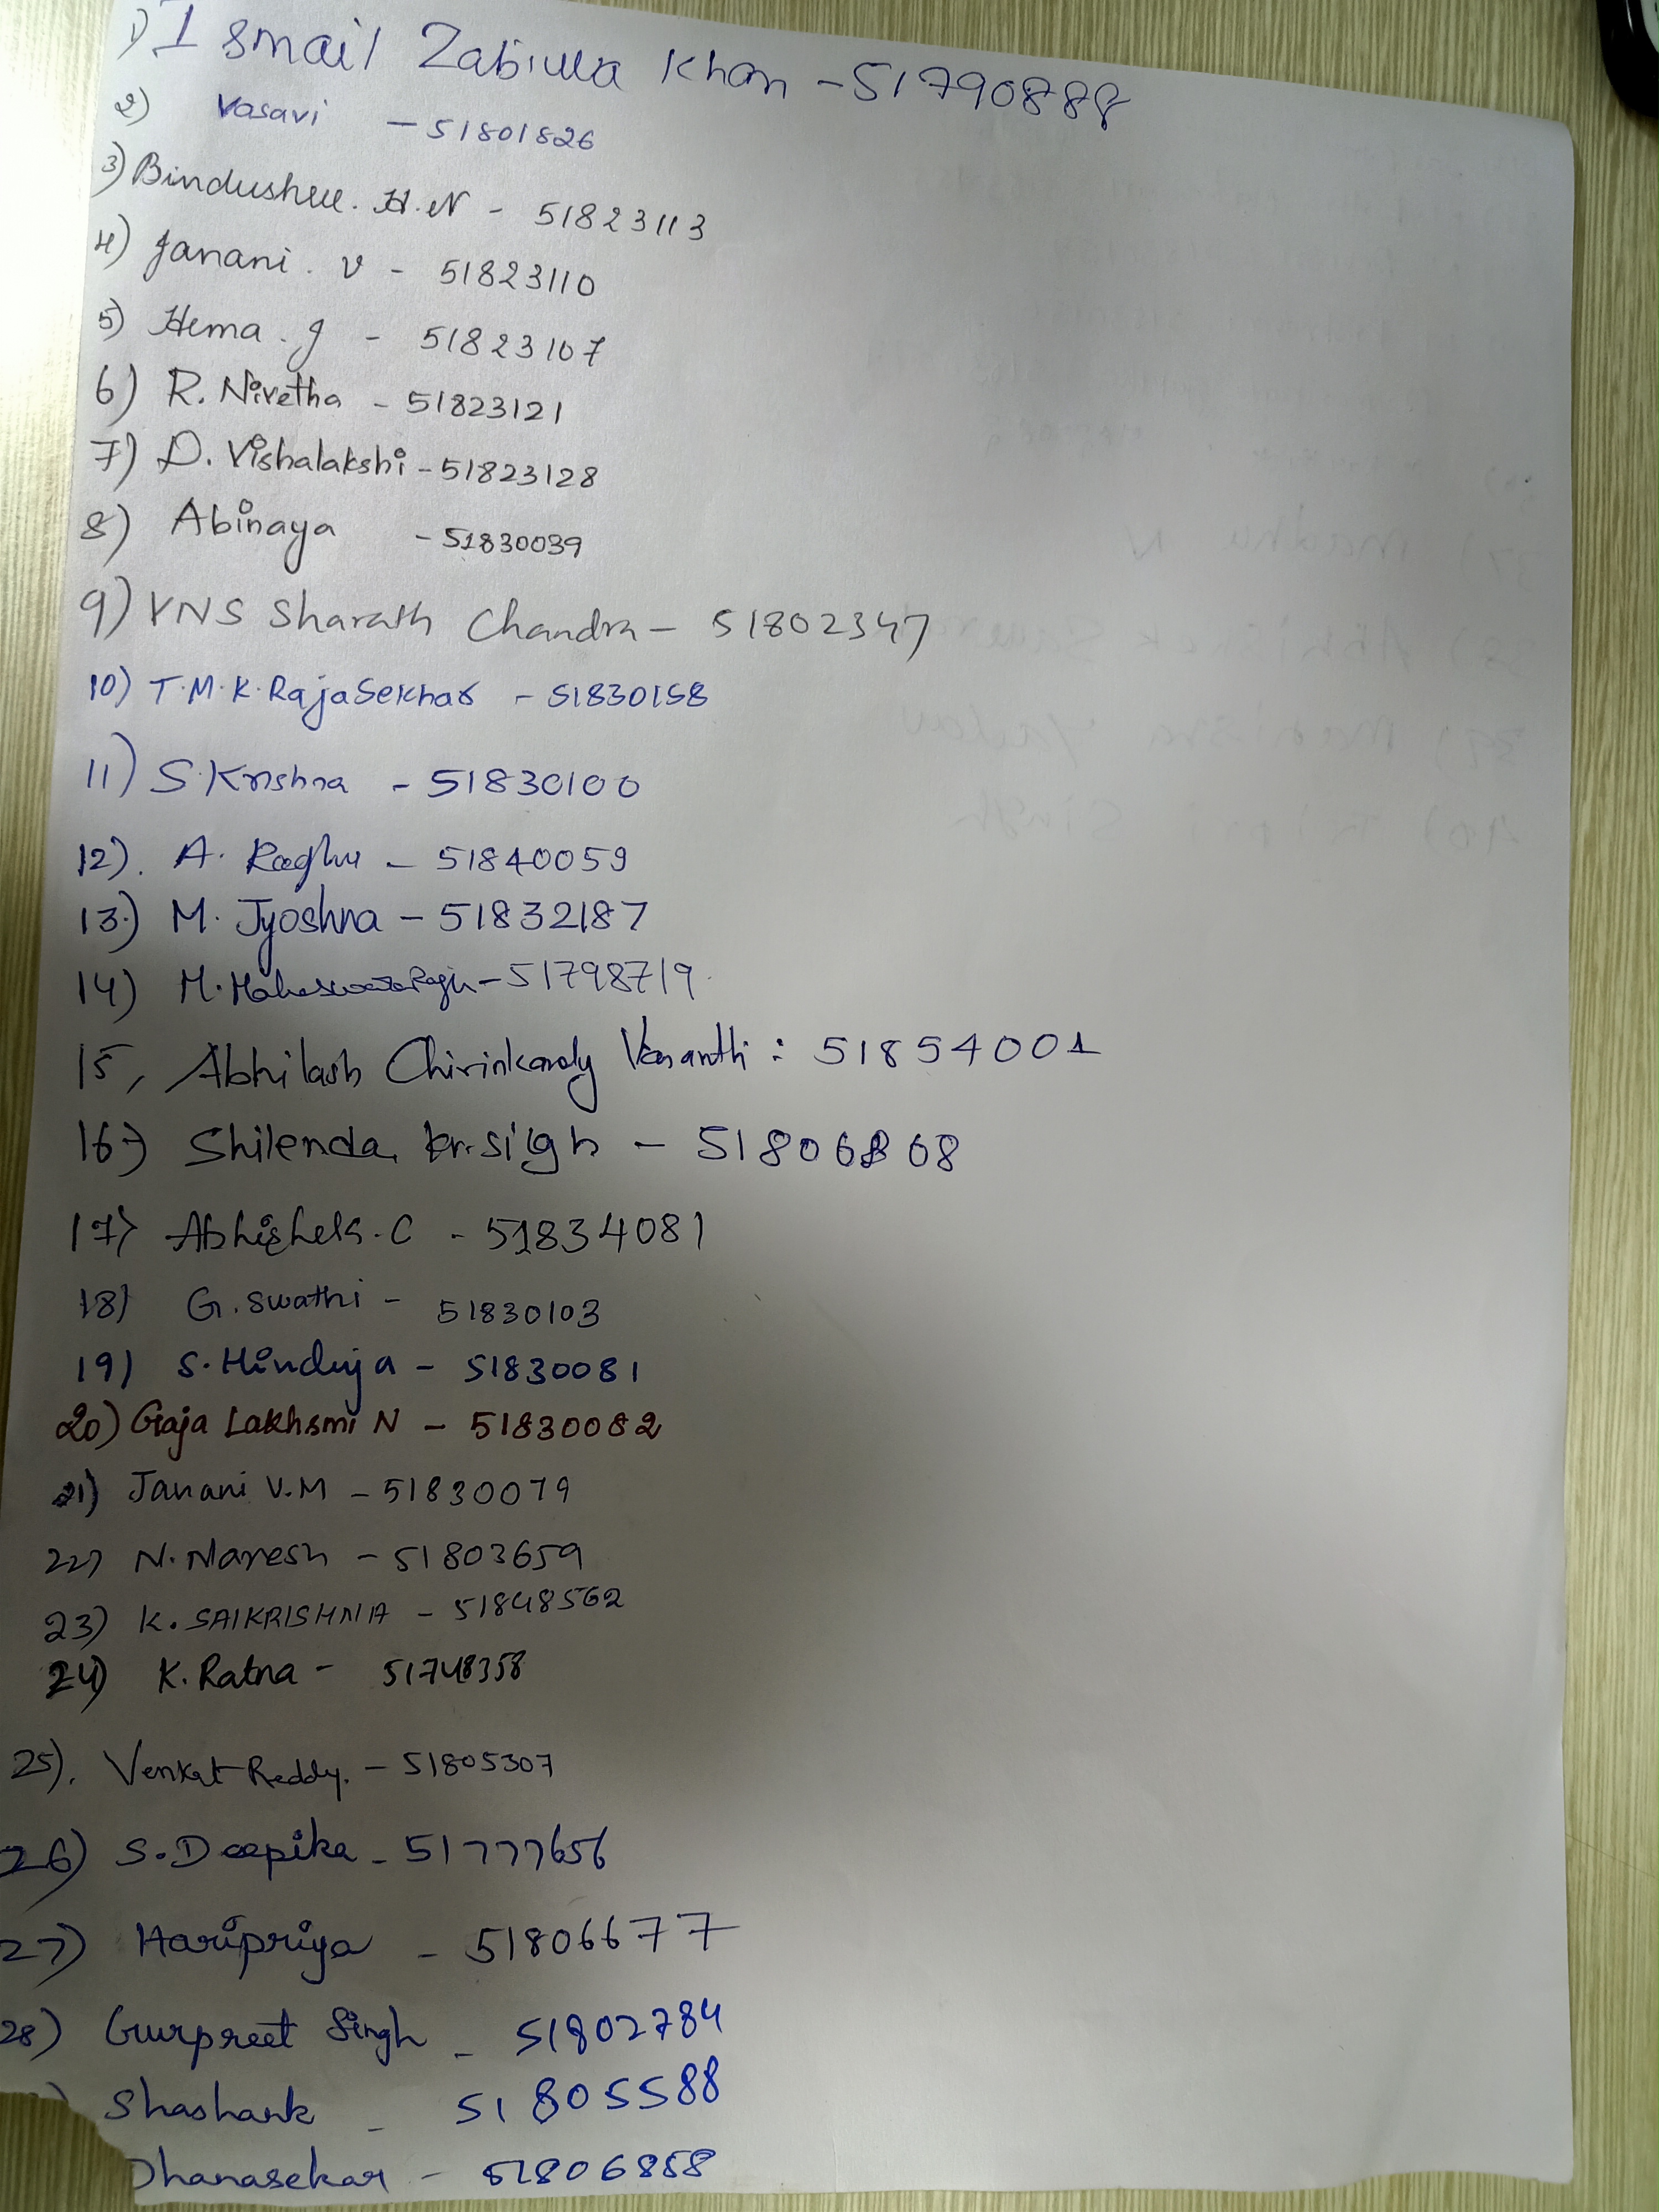 1) Ismail Zabiulla Khan - 51790888
2) Vasavi - 51801826
3) Bindushree. H.N - 51823113
4) Janani. V - 51823110
5) Hema. J - 51823107
6) R. Nivetha - 51823121
7) D. Vishalakshi - 51823128
8) Abinaya - 51830039
9) YNS Sharath Chandra - 51802347
10) T.M.K. RajaSekhar - 51830158
11) S.Krishna - 51830100
12). A. Raghu - 51840059
13) M. Jyoshna - 51832187
14) M. - 51798719
15, Abhilash Chirinkandy Vasanthi : 51854001
16) Shilenda kr. sigh - 51806868
17) Abhishek. C - 51834081
18) G. Swathi - 51830103
19) S. Hinduja - 51830081
20) Gaja Lakhsmi N - 51830082
21) Janani V.M - 51830079
22) N. Naresh - 51803659
23) K. SAIKRISHNA - 51848562
24) K. Ratna - 51748358
25). Venkat Reddy. - 51805307
26) S. Deepika - 51777656
27) Haripriya - 51806677
28) Gurpreet Singh - 51802784
) Shashank - 51805588
Dhanasekar - 51806858